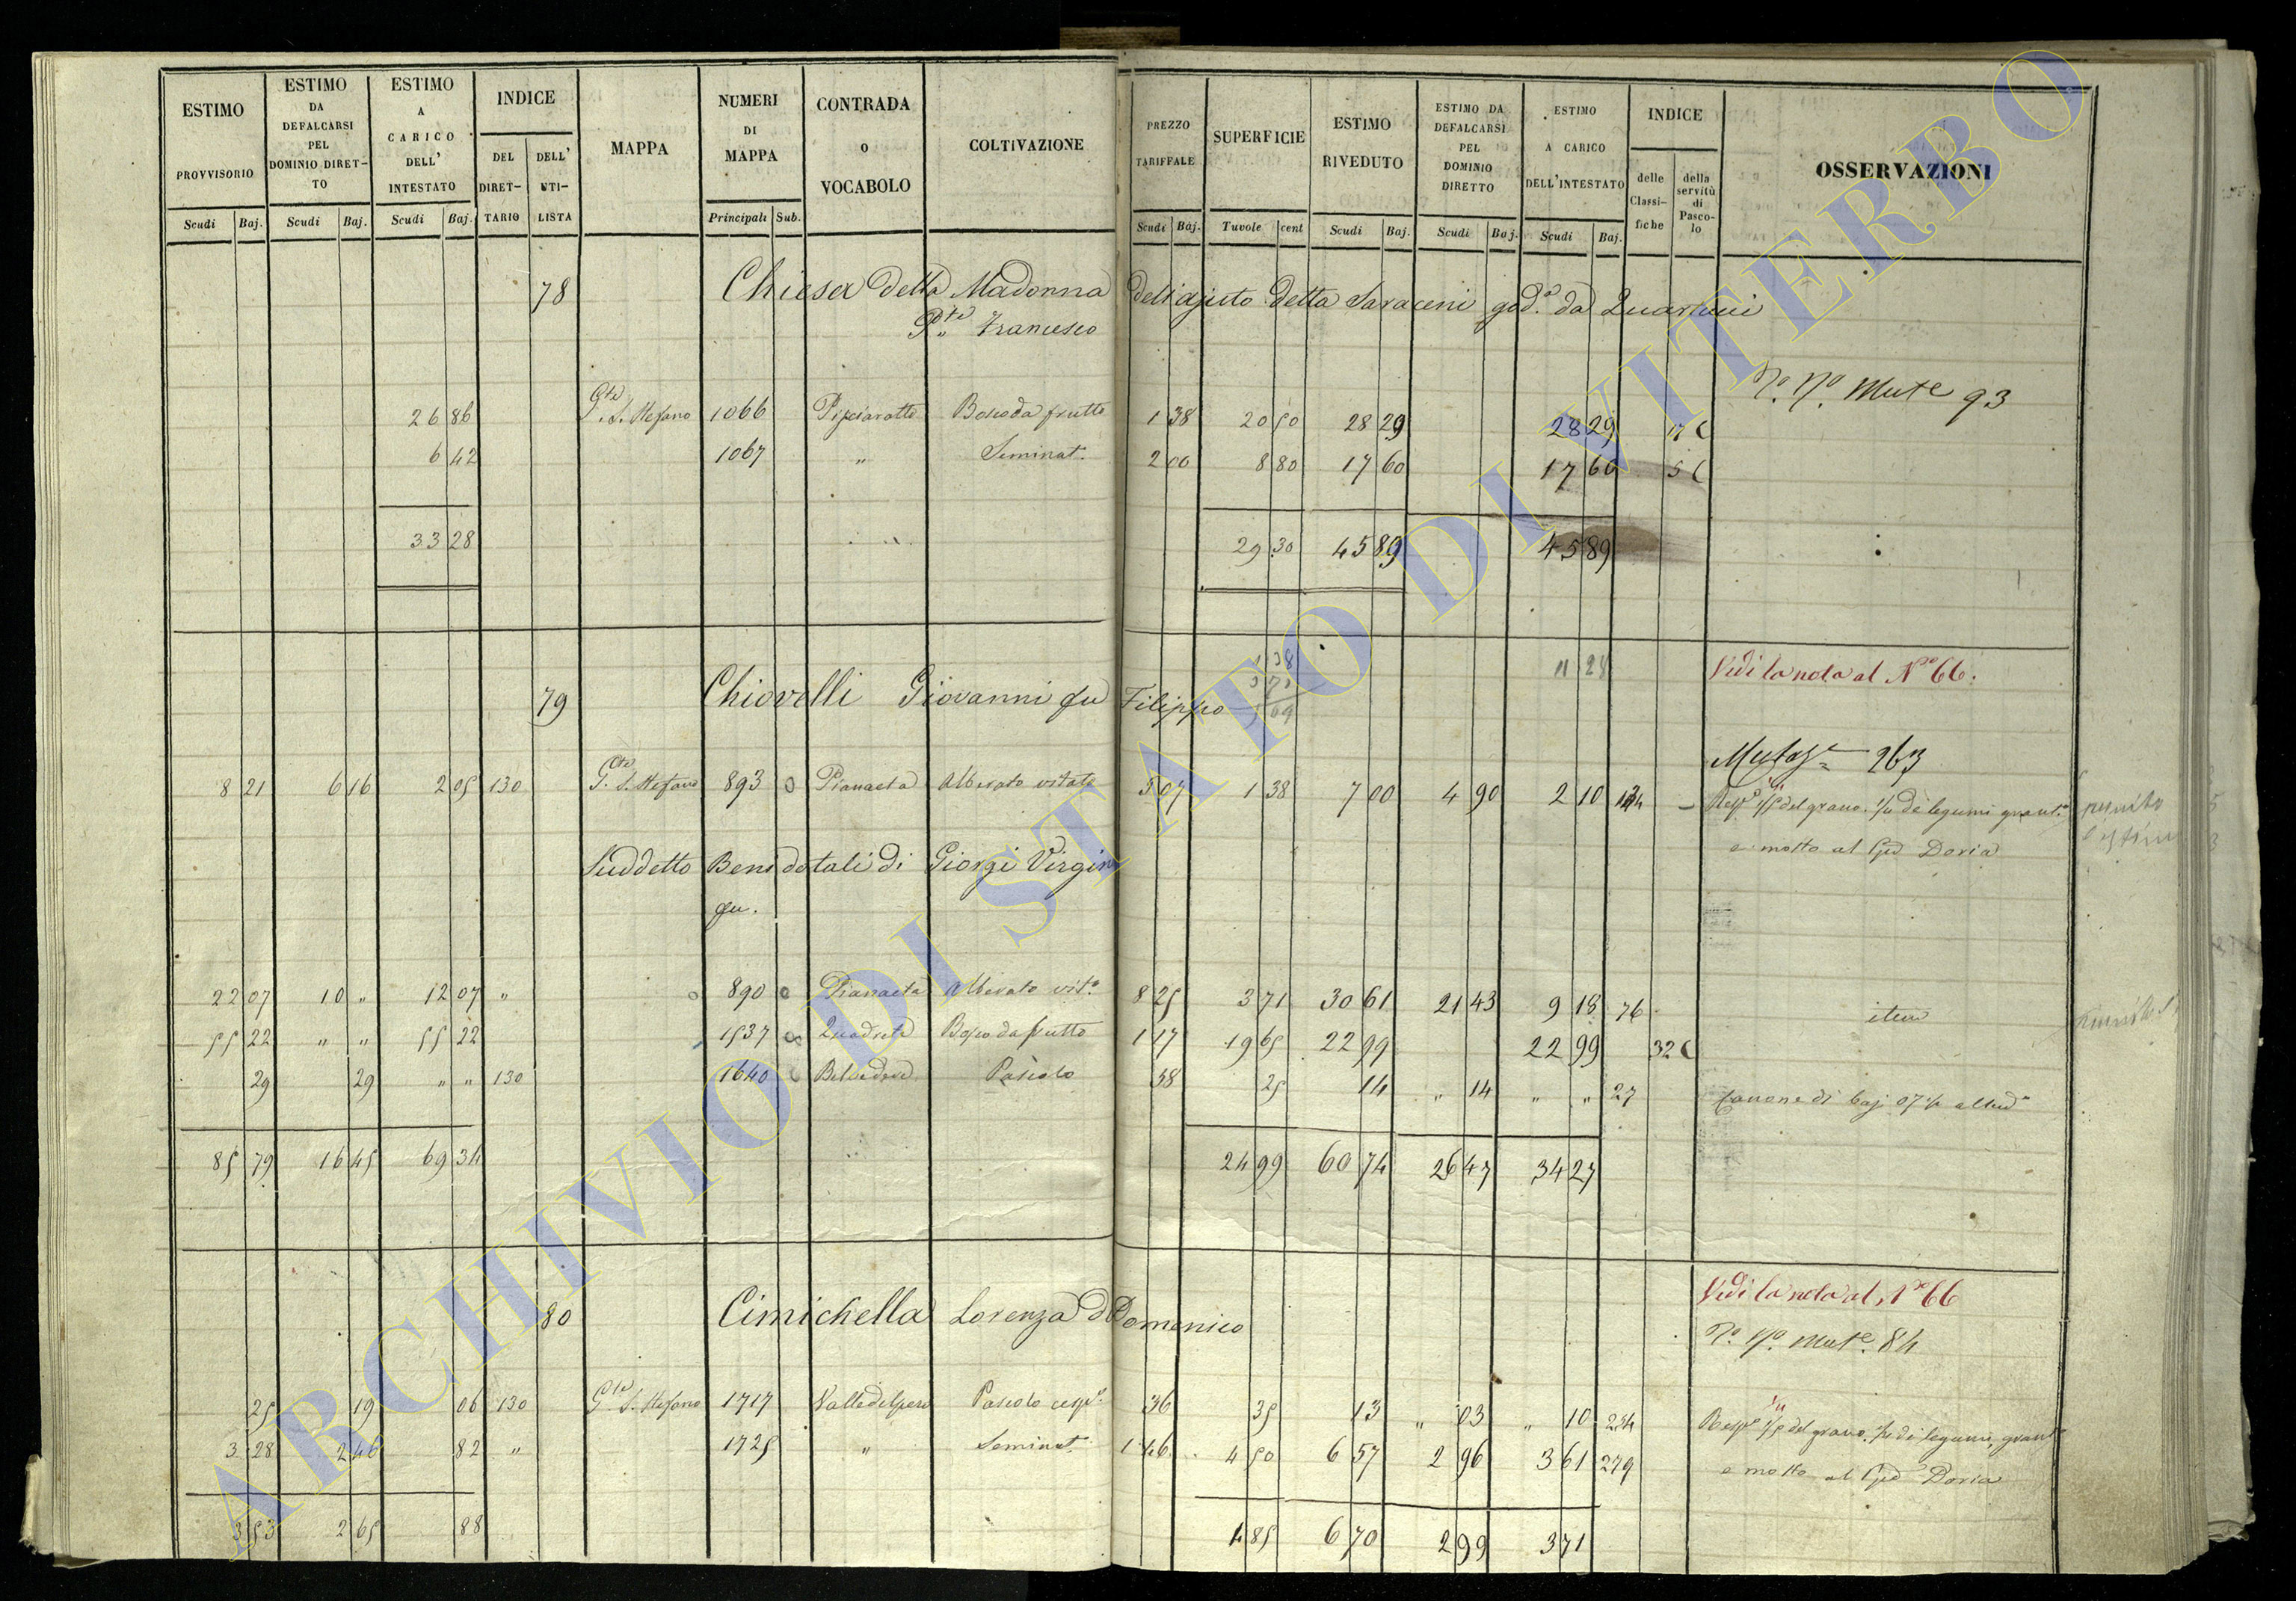 ESTIMO PROVVISORIO Scudi Baj.
ESTIMO DA DEFALCARSI PEL DOMINIO DIRET- TO Scudi Baj.
ESTIMO A CARICO DELL' INTESTATO Scudi Baj.
INDICE DEL DIRET- TARIO DELL' UTI- LISTA
MAPPA
NUMERI DI MAPPA Principali Sub.
CONTRADA O VOCABOLO
COLTIVAZIONE
PREZZO TARIFFALE Scudi Baj.
SUPERFICIE Tavole cent
ESTIMO RIVEDUTO Scudi Baj.
ESTIMO DA DEFALCARSI PEL DOMINIO DIRETTO Scudi Baj.
ESTIMO A CARICO DELL'INTESTATO Scudi Baj.
INDICE delle Classi- fiche della servitù di Pasco- lo
OSSERVAZIONI
78 Chiesa della Madonna dell'ajuto detta Saraceni god.a da
P.te Francesco
N.o N.o Mut.e 93
26 86 P.te S. Stefano 1066 Bosco da frutto 1 38 20 50 28 29 28 29
6 42 1067 " Seminat. 2 00 8 80 17 60 17 60 5
33 28 29 30 45 89 45 89
Vedi la nota al N.o 66.
79 Chiovelli Giovanni fu Filippo
1 38
3 71
5 09
11 28
263
8 21 6 16 2 05 130 S. Stefano 893 o Pianaeta Alberato vitato 5 07 1 38 7 00 4 90 2 10
del grano di legumi
e mosto al Doria
Suddetto Beni dotali di Giorgi Virginia
fu.
22 07 10 " 12 07 " 890 o Pianaeta Alberato vit.o 8 25 3 71 30 61 21 43 9 18 76 item
55 22 " " 55 22 1537 Bosco da frutto 1 17 19 65 22 99 22 99 32
29 29 " " 130 1640 Belvedere Pascolo 38 25 14 " 14 " " 27 Canone di baj. 07
85 79 16 45 69 34 24 99 60 74 26 47 34 27
Vedi la nota al N.o 66
80 Cimichella Lorenza di Domenico
N.o N.o Mut.e 84
25 19 06 130 S. Stefano 1717 Valle del pero Pascolo cesp.o 36 35 13 " 03 " 10 234 del grano di legumi
3 28 2 46 82 " 1725 " Seminat. 1 46 4 50 6 57 2 96 3 61 279 e mosto al Doria
3 53 2 65 88 4 85 6 70 2 99 3 71
ARCHIVIO DI STATO DI VITERBO